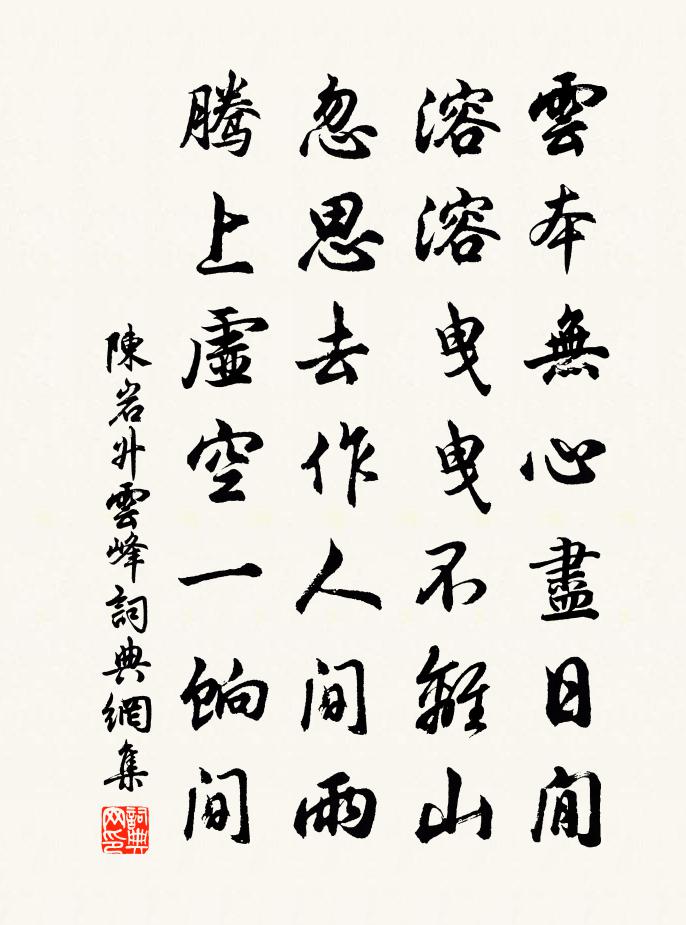 雲本無心盡日閒
溶溶曳曳不離山
忽思去作人間雨
騰上虛空一餉間
陳岩升雲峰詞典網集
詞典網印